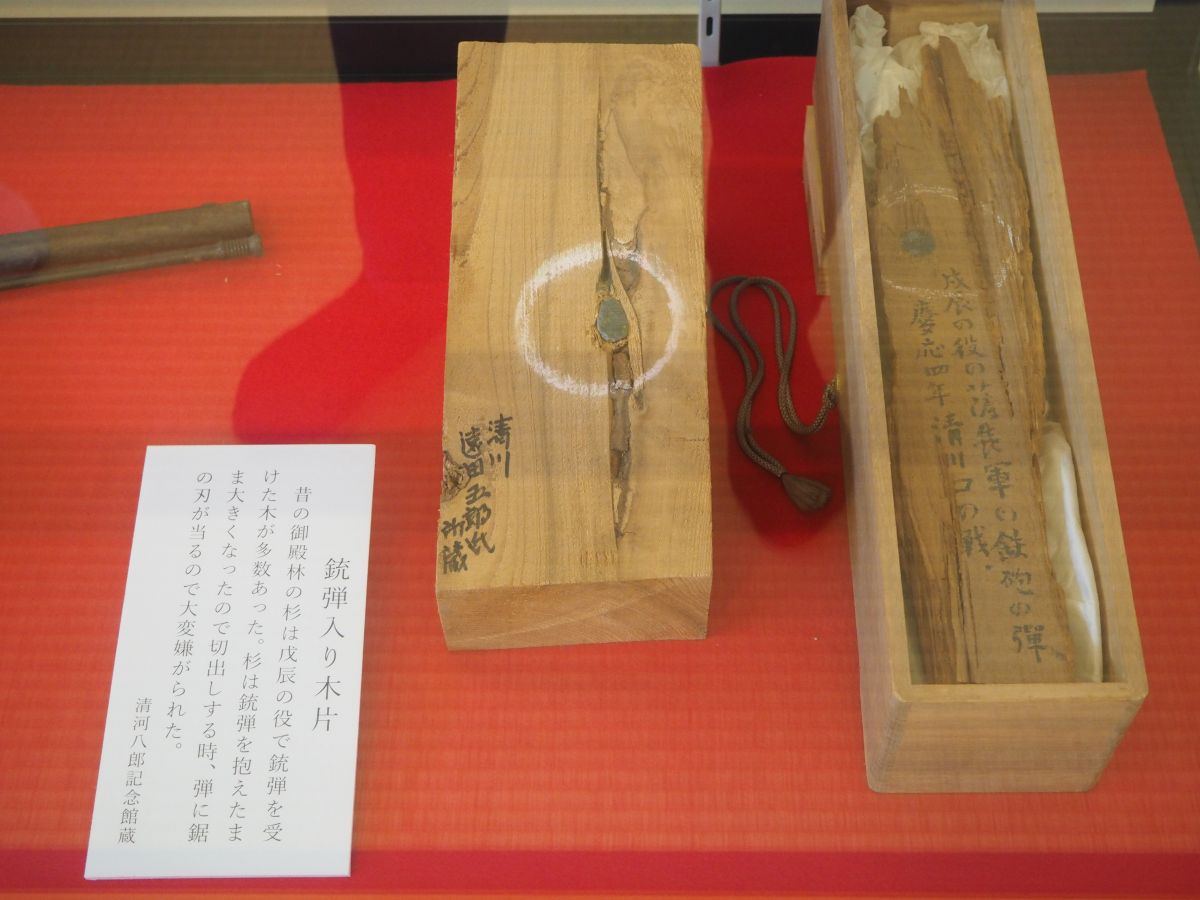 銃弾入り木片
昔の御殿林の杉は戊辰の役で銃弾を受
けた木が多数あった。杉は銃弾を抱えたま
ま大きくなったので切出しする時、弾に鋸
の刃が当るので大変嫌がられた。
清河八郎記念館蔵
清川
遠田五郎氏
所蔵
戊辰の役の薩長軍の鉄砲の彈
慶応四年 清川口の戦